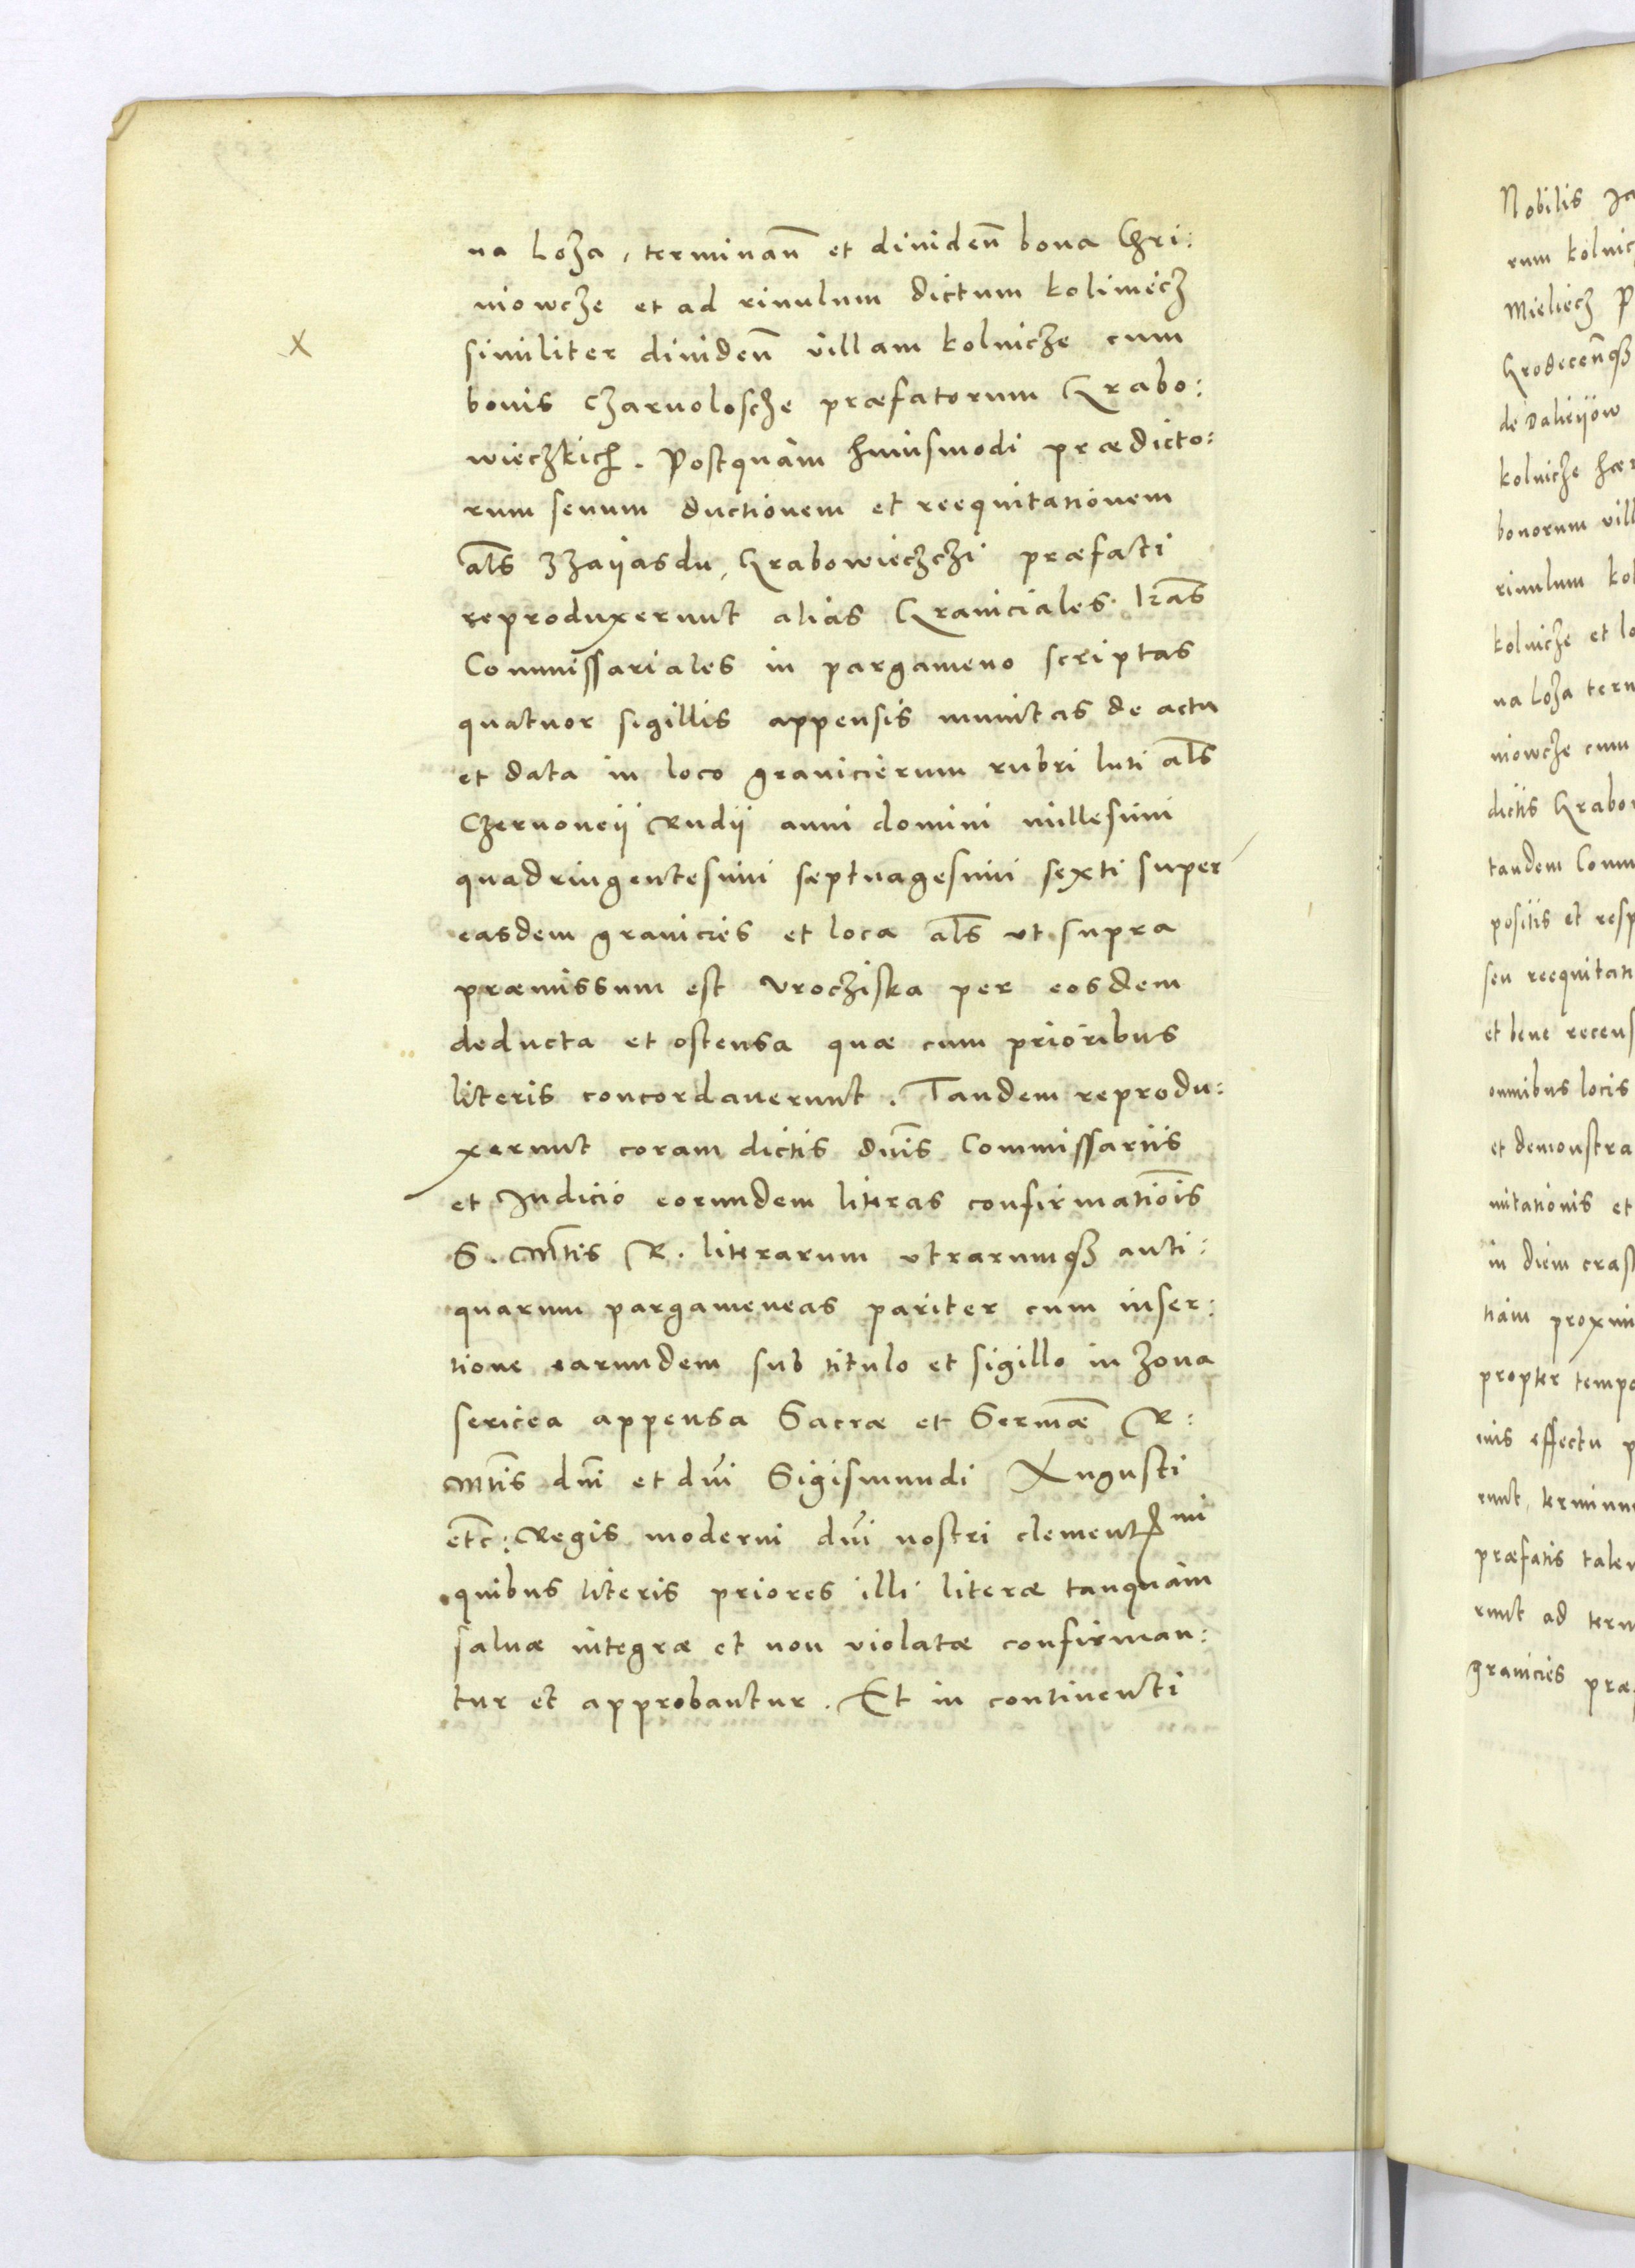 na Loza, terminan̄ et dividen̄ bona Chri:
niowcze et ad rivulum dictum kolimiecz
similiter dividen̄ villam kolnicze cum
bonis Czarnolosche præfatorum Grabo:
wieczkich. Postquam huiusmodi prædicto:
rum senum ductionem et reequitationem
al̄s Zzaijasdu, Grabowieczczi præfati
reproduxerunt alias Graniciales lr̄as
Commissariales in pargameno scriptas
quatuor sigillis appensis munitas de actu
et data in loco granicierum rubri luti al̄s
Czernoneii Rudii anni domini millesimi
quadringentesimi septuagesimi sexti super
easdem granicies et loca al̄s ut supra
præmissum est Vrocziska per eosdem
deducta et ostensa quæ cum prioribus
literis concordaverunt. Tandem reprodu:
xerunt coram dictis dn̄is Commissariis
et Judicio eorundem literas confirmatiōis
S. Mt̄is R. literarum utrarumqȝ anti:
quarum pargameneas pariter cum inser:
tione earundem sub titulo et sigillo in zona
sericea appensa Sacræ et Serm̄æ R:
Mt̄is dn̄i et dn̄i Sigismundi Augusti
et̄c: Regis moderni dn̄i nostri clementis̄mi
quibus literis priores illi literæ tanquam
salvæ integræ et non violatæ confirman:
tur et approbantur. Et in continenti
Nobilis
rum
Mieliecz
Grodecen̄qȝ
de Daliejow
kolnicze
bonorum
rivulum
kolnicze et
na Loza
niowcze cum
dictis
tandem
positis et
seu
et bene
omnibus locis
et
mitationis et
in diem
tiam
propter
nis effectu
runt,
præfatis
runt ad
granicies